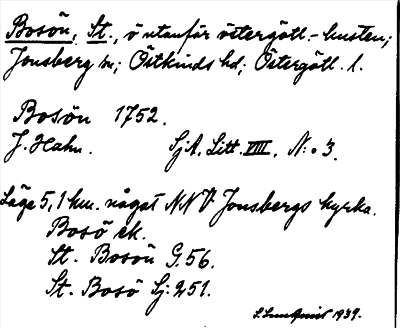 Bosön, St., ö utanför östergötl.-kusten;
Jonsberg sn; Östkinds hd; Östergötl. l.
Bosön 1752.
J. Hahn. SjA. Litt. VIII, N:o 3.
Läge 5,1 km. något NNV Jonsbergs kyrka.
Bosö ek.
St. Bosön G. 56.
St. Bosö Sj: 251.
S. Lundqvist 1939.